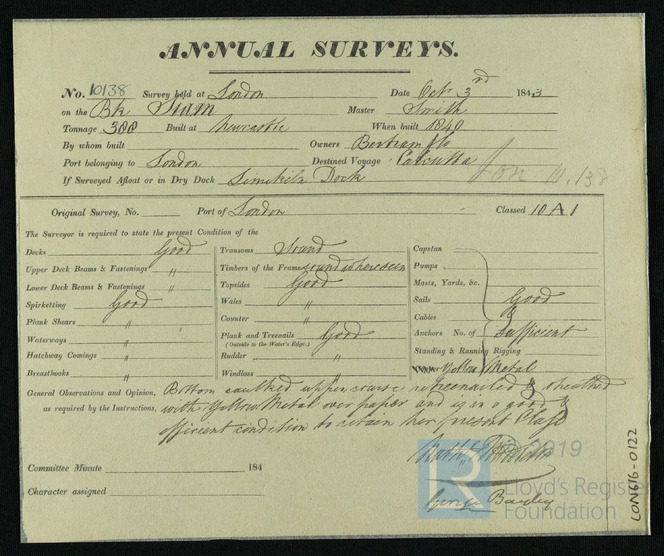 ANNUAL SURVEYS.
No. 10138 Survey held at London Date Oct 3rd 1843
on the Bk Siam Master Smith
Tonnage 300 Built at Newcastle When built 1840
By whom built Owners Bertram & Co
Port belonging to London Destined Voyage Calcutta
If Surveyed Afloat or in Dry Dock Limekiln Dock
Lon 10,138
Original Survey, No. Port of London Classed 10 A 1
The Surveyor is required to state the present Condition of the
Decks Good
Upper Deck Beams & Fastenings "
Lower Deck Beams & Fastenings "
Spirketting Good
Plank Shears "
Waterways "
Hatchway Comings "
Breasthooks "
Transoms Sound
Timbers of the Frame sound where seen
Topsides Good
Wales "
Counter "
Plank and Treenails Good
(Outside to the Water's Edge.)
Rudder "
Windlass "
Capstan
Pumps
Masts, Yards, &c.
Sails Good
Cables &
Anchors No. of Sufficient
Standing & Running Rigging
Yellow Metal
General Observations and Opinion, Bottom caulked upper course retreenailed & sheathed
as required by the Instructions, with Yellow Metal over paper and is in a good &
efficient condition to retain her present Class
Committee Minute 184
Character assigned
George Bayley
© 2019
Lloyd's Register
Foundation
LON616-0122